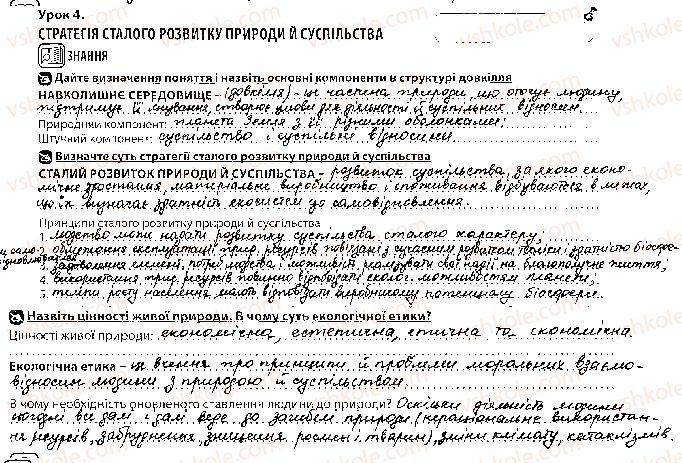 Урок 4.
СТРАТЕГІЯ СТАЛОГО РОЗВИТКУ ПРИРОДИ Й СУСПІЛЬСТВА
ЗНАННЯ
Дайте визначення поняття і назвіть основні компоненти в структурі довкілля
НАВКОЛИШНЄ СЕРЕДОВИЩЕ – (довкілля) – це частина природи, що оточує людину,
підтримує її існування, створює умови для діяльності й суспільних відносин.
Природний компонент: планета Земля з її різними оболонками;
Штучний компонент: суспільство і суспільні відносини.
Визначте суть стратегії сталого розвитку природи й суспільства
СТАЛИЙ РОЗВИТОК ПРИРОДИ Й СУСПІЛЬСТВА – розвиток суспільства, за якого еконо-
мічне зростання, матеріальне виробництво і споживання відбуваються в межах,
що їх визначає здатність екосистем до самовідновлення.
Принципи сталого розвитку природи й суспільства
1. людство може надати розвитку суспільства сталого характеру;
2. обмеження експлуатації прир. ресурсів пов'язані з сучасним розвитком техніки і здатністю біосфе-
ри само-
відновлюватися
3. задоволення елемент. потреб людства і можливість реалізувати свої надії на благополучне життя;
4. використання прир. ресурсів повинно відповідати еколог. можливостям планети;
5. темпи росту населення мають відповідати виробничому потенціалу біосфери.
Назвіть цінності живої природи. В чому суть екологічної етики?
Цінності живої природи: економічна, естетична, етична та економічна
Екологічна етика – це вчення про принципи й проблеми моральних взаємо-
відносин людини з природою й суспільством.
В чому необхідність оновленого ставлення людини до природи? Оскільки діяльність людини
веде до загибелі природи (нераціональне використан-
ня ресурсів, забруднення, знищення рослин і тварин), зміни клімату, катаклізмів.